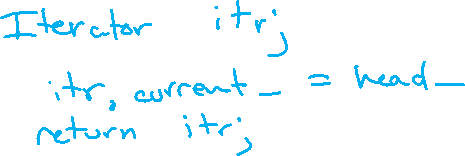 Iterator itr;
itr, current_ = head_
return itr;